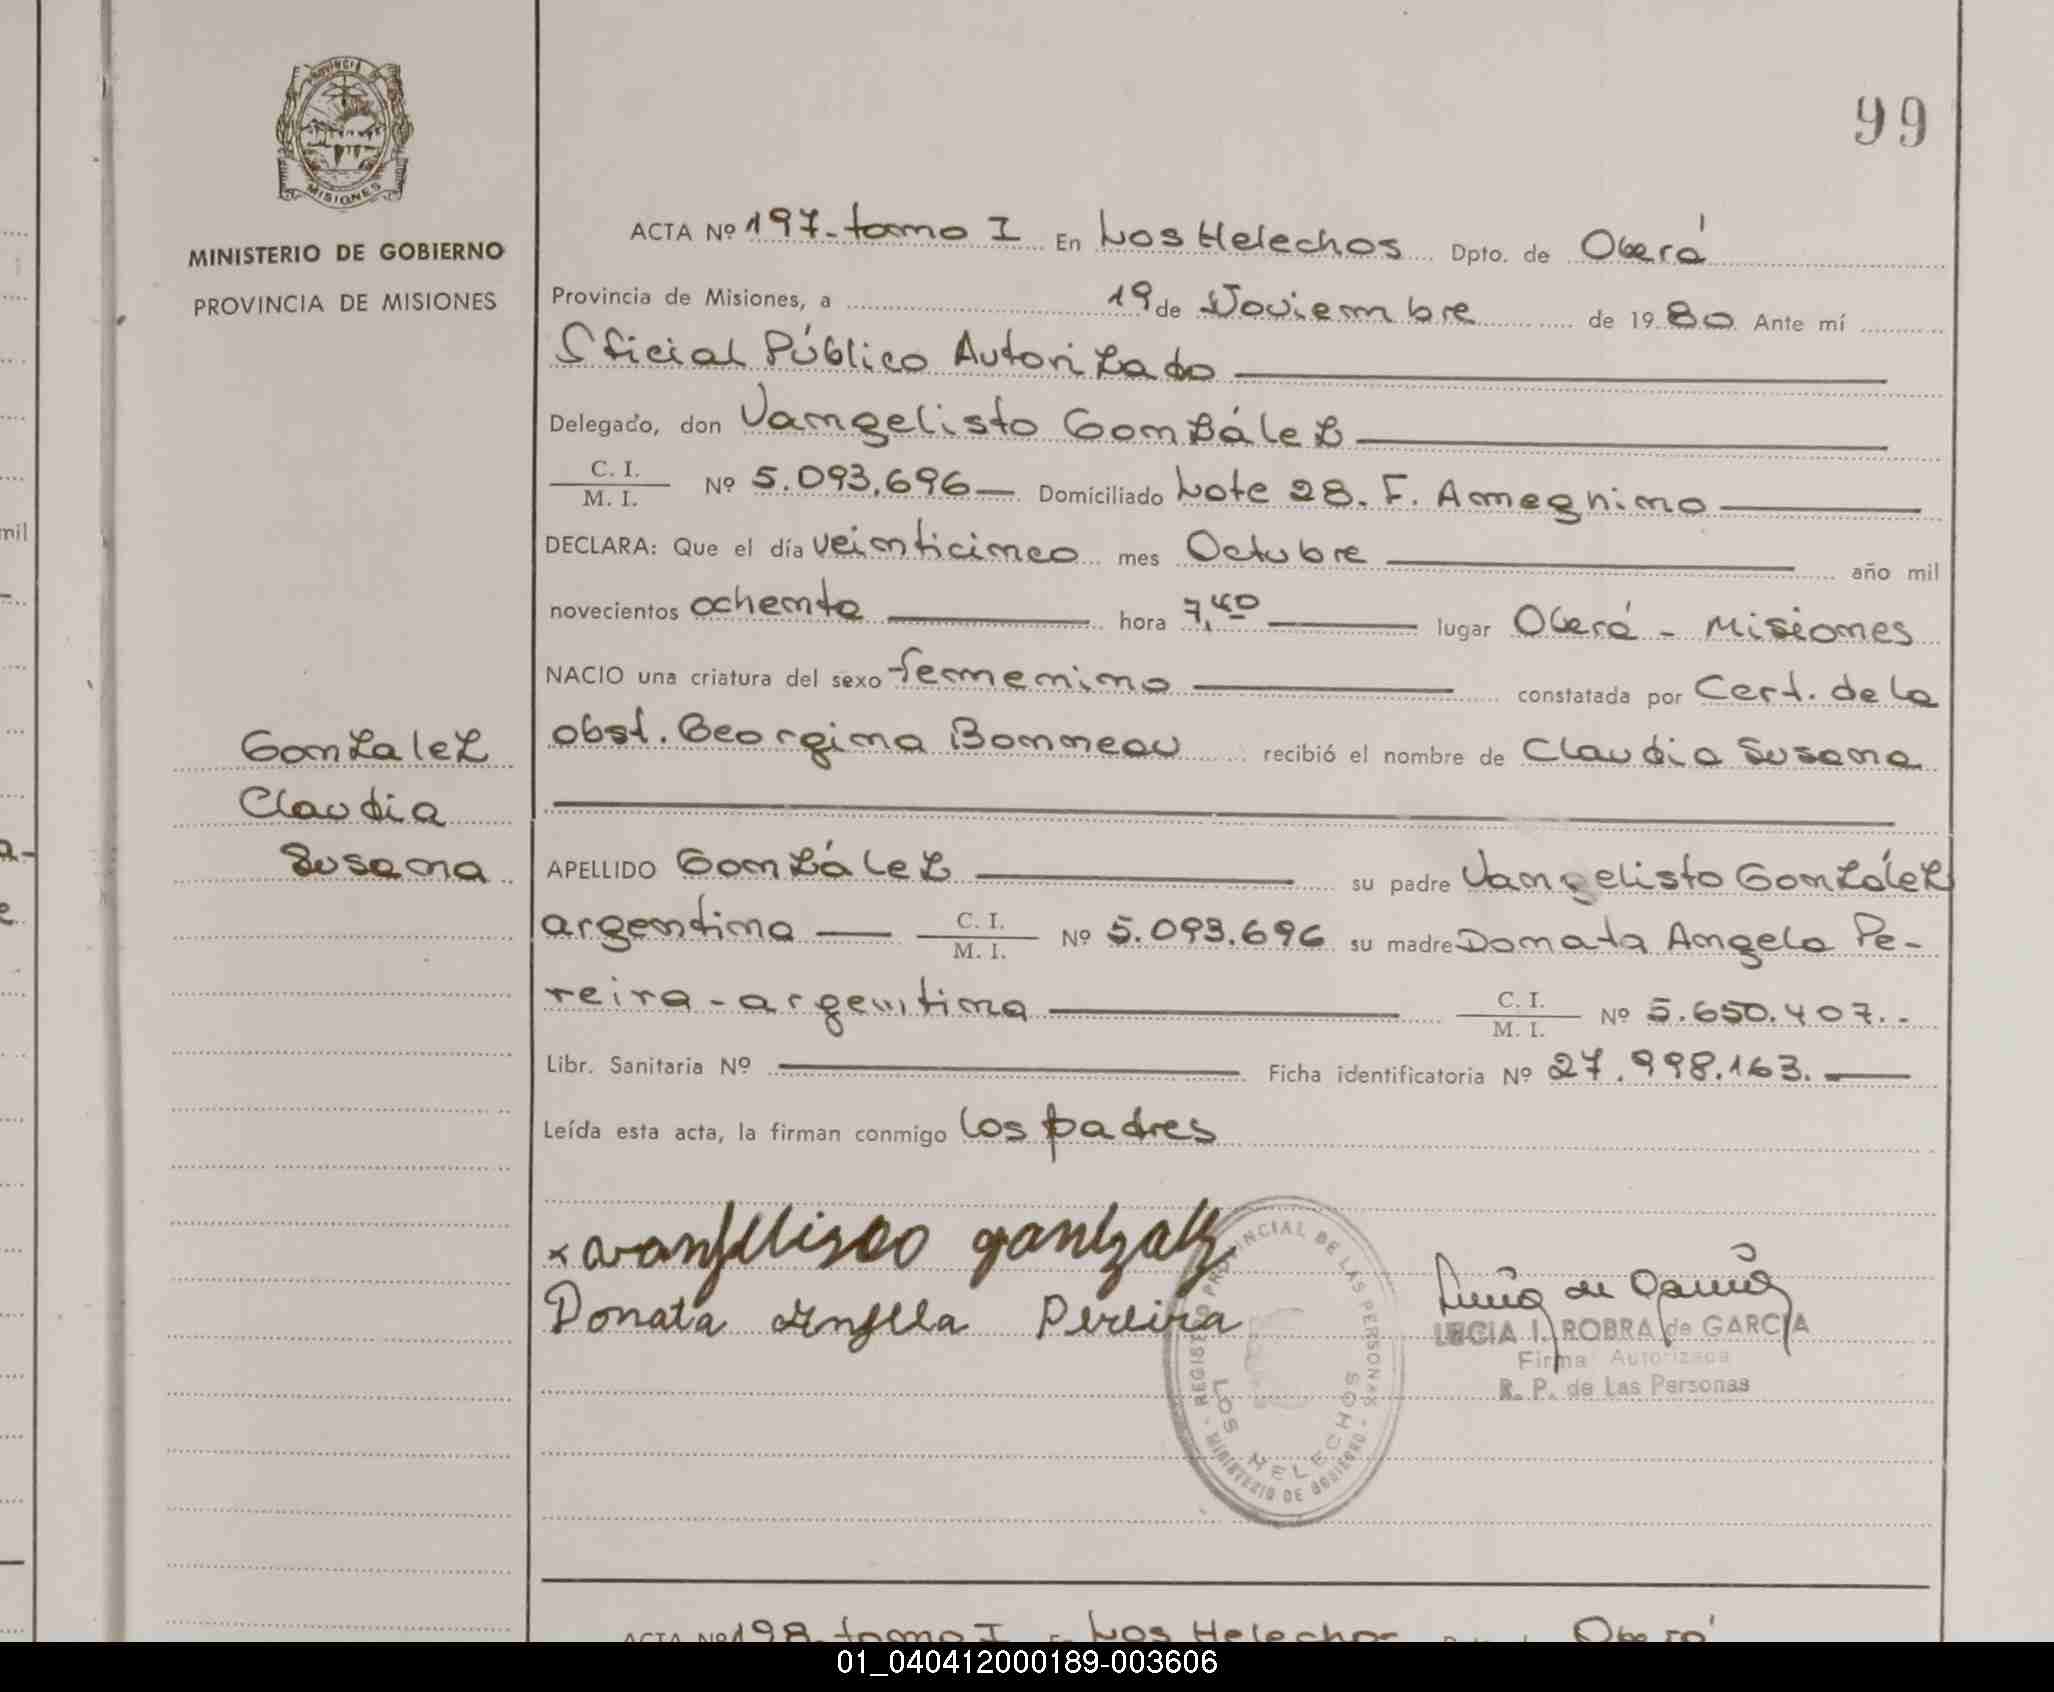 99
PROVINCIA
MISIONES
MINISTERIO DE GOBIERNO
PROVINCIA DE MISIONES
ACTA Nº 197-tomo I En Los Helechos Dpto. de Oberá
Provincia de Misiones, a 19 de Noviembre de 1980 Ante mí
Oficial Público Autorizado
Delegado, don Vangelisto González
C. I.
M. I.
Nº 5.093.696 Domiciliado Lote 28. F. Ameghino
DECLARA: Que el día veinticinco mes Octubre año mil
novecientos ochenta hora 7,40 lugar Oberá - Misiones
NACIO una criatura del sexo femenino constatada por Cert. de la
obst. Georgina Bonneau recibió el nombre de Claudia Susana
Gonzalez
Claudia
Susana
APELLIDO González su padre Vangelisto González
argentina C. I.
M. I.
Nº 5.093.696 su madre Donata Angela Pe-
reira - argentina C. I.
M. I.
Nº 5.650.407.-
Libr. Sanitaria Nº Ficha identificatoria Nº 27.998.163.
Leída esta acta, la firman conmigo los padres
Donata Angela Pereira
REGISTRO PROVINCIAL DE LAS PERSONAS - MINISTERIO DE GOBIERNO -
LOS HELECHOS
LUCIA I. ROBRA de GARCIA
Firma Autorizada
R. P. de Las Personas
ACTA Nº 198-tomo I En Los Helechos Oberá
01_040412000189-003606
mil